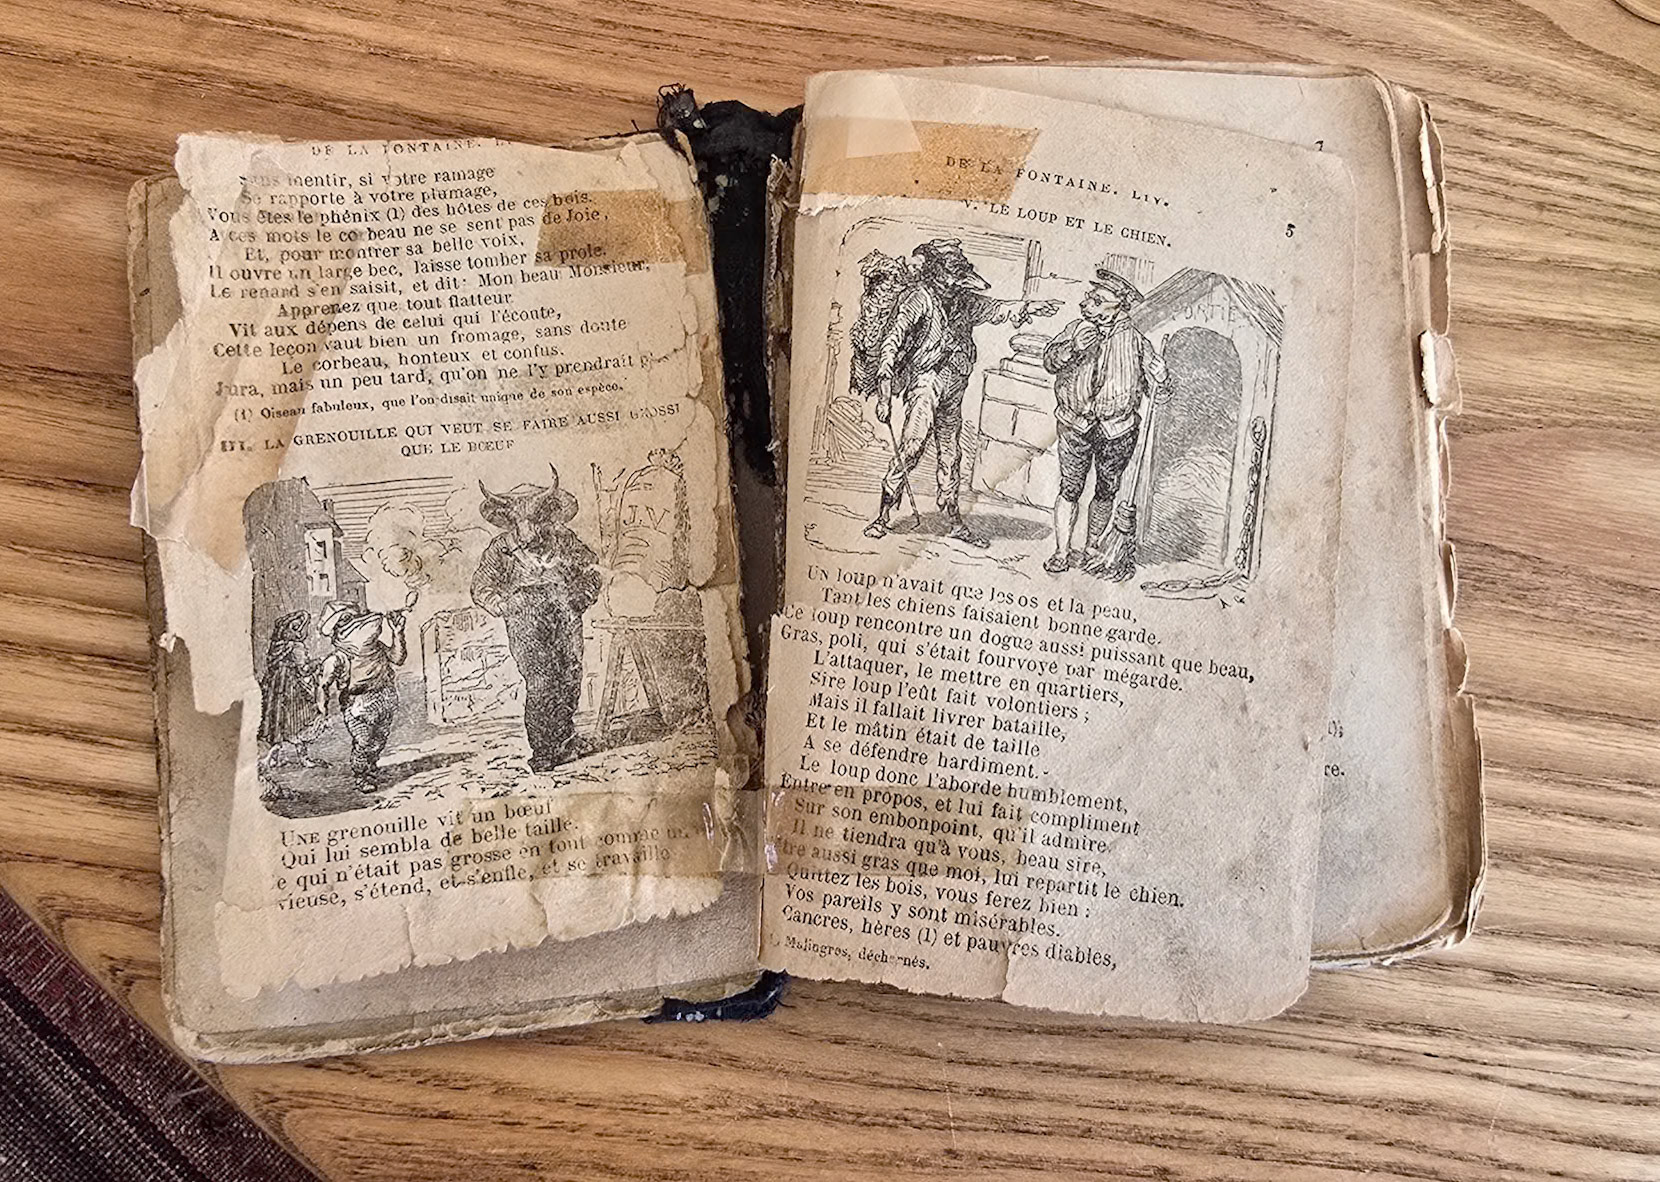 DE LA FONTAINE.
mentir, si votre ramage
Se rapporte à votre plumage,
Vous êtes le phénix (1) des hôtes de ces bois.
A ces mots le corbeau ne se sent pas de Joie,
Et, pour montrer sa belle voix,
Il ouvre un large bec, laisse tomber sa proie.
Le renard s'en saisit, et dit: Mon beau Monsieur,
Apprenez que tout flatteur
Vit aux dépens de celui qui l'écoute,
Cette leçon vaut bien un fromage, sans doute
Le corbeau, honteux et confus.
Jura, mais un peu tard, qu'on ne l'y prendrait
(1) Oiseau fabuleux, que l'on disait unique de son espèce.
III. LA GRENOUILLE QUI VEUT SE FAIRE AUSSI GROSSE
QUE LE BŒUF
J.V
UNE grenouille vit un bœuf
Qui lui sembla de belle taille.
e qui n'était pas grosse en tout comme un
vieuse, s'étend, et s'enfle, et se travaille
DE LA FONTAINE. LIV.
5
V. LE LOUP ET LE CHIEN.
UN loup n'avait que les os et la peau,
Tant les chiens faisaient bonne garde.
Ce loup rencontre un dogue aussi puissant que beau,
Gras, poli, qui s'était fourvoyé par mégarde.
L'attaquer, le mettre en quartiers,
Sire loup l'eût fait volontiers ;
Mais il fallait livrer bataille,
Et le mâtin était de taille
A se défendre hardiment.
Le loup donc l'aborde humblement,
Entre en propos, et lui fait compliment
Sur son embonpoint, qu'il admire.
Il ne tiendra qu'à vous, beau sire,
tre aussi gras que moi, lui repartit le chien.
Quittez les bois, vous ferez bien :
Vos pareils y sont misérables.
Cancres, hères (1) et pauvres diables,
Malingres, décharnés.
re.